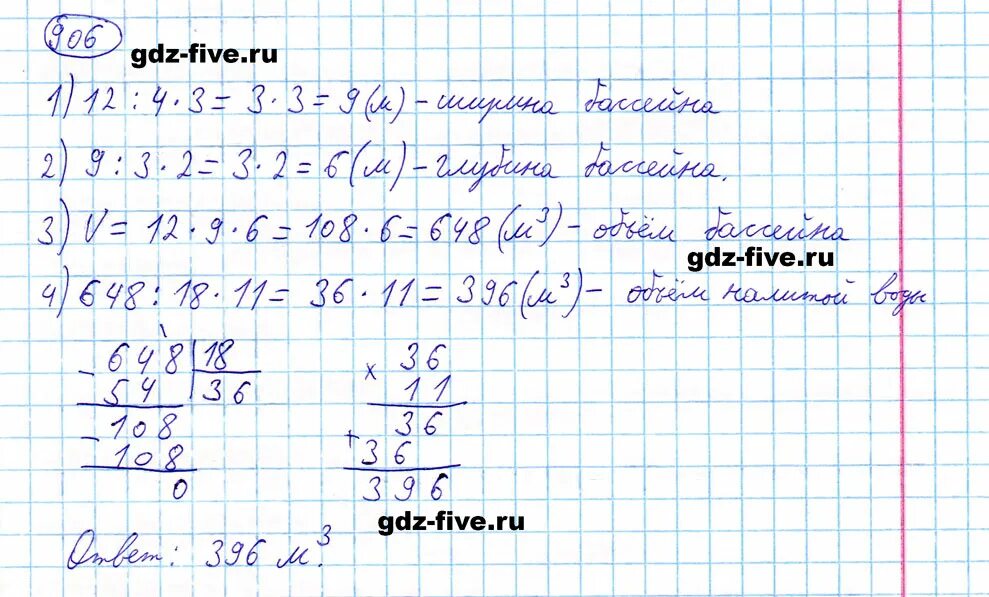 906
gdz-five.ru
1) 12 : 4 · 3 = 3 · 3 = 9 (м) – ширина бассейна
2) 9 : 3 · 2 = 3 · 2 = 6 (м) – глубина бассейна.
3) V = 12 · 9 · 6 = 108 · 6 = 648 (м³) – объём бассейна
gdz-five.ru
4) 648 : 18 · 11 = 36 · 11 = 396 (м³) – объём налитой воды
– 648 | 18
54 | 36
– 108
108
0
× 36
11
36
+ 36
396
gdz-five.ru
Ответ: 396 м³.